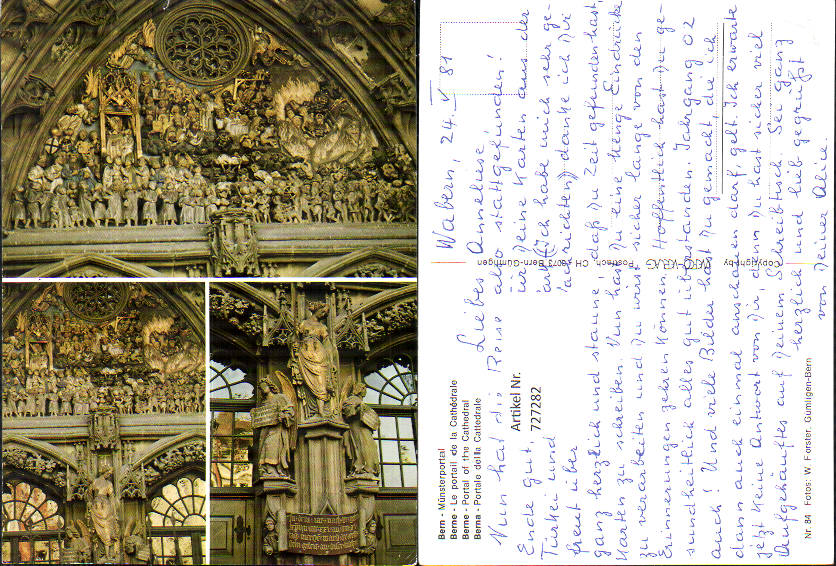 Wabern, 24. V 81
Liebes Anneliese!
Nun hat die Reise also stattgefunden!
Ende gut für Deine Karten aus der
Türkei und (ich habe mich sehr ge-
freut über Nachrichten) danke ich Dir
ganz herzlich und staune, daß Du Zeit gefunden hast,
Karten zu schreiben. Nun hast Du eine Menge Eindrücke
zu verarbeiten und Du wirst sicher lange von den
Erinnerungen zehren können. Hoffentlich hast Du ge-
sundheitlich alles gut überstanden. Jahrgang 02
auch! Und viele Bilder hast Du gemacht, die ich
dann auch einmal anschauen darf, gelt. Ich erwarte
jetzt keine Antwort von Dir, denn Du hast sicher viel
Aufgehäuftes auf Deinem Schreibtisch. Sei ganz
herzlich und lieb gegrüßt
von Deiner Alice
Bern - Münsterportal
Berne - Le portail de la Cathédrale
Berne - Portal of the Cathedral
Berna - Portale della Cattedrale
Artikel Nr.
727282
Copyright by VERLAG Postfach CH 3073 Bern-Gümligen
Nr. 84 Fotos: W. Forster, Gümligen-Bern